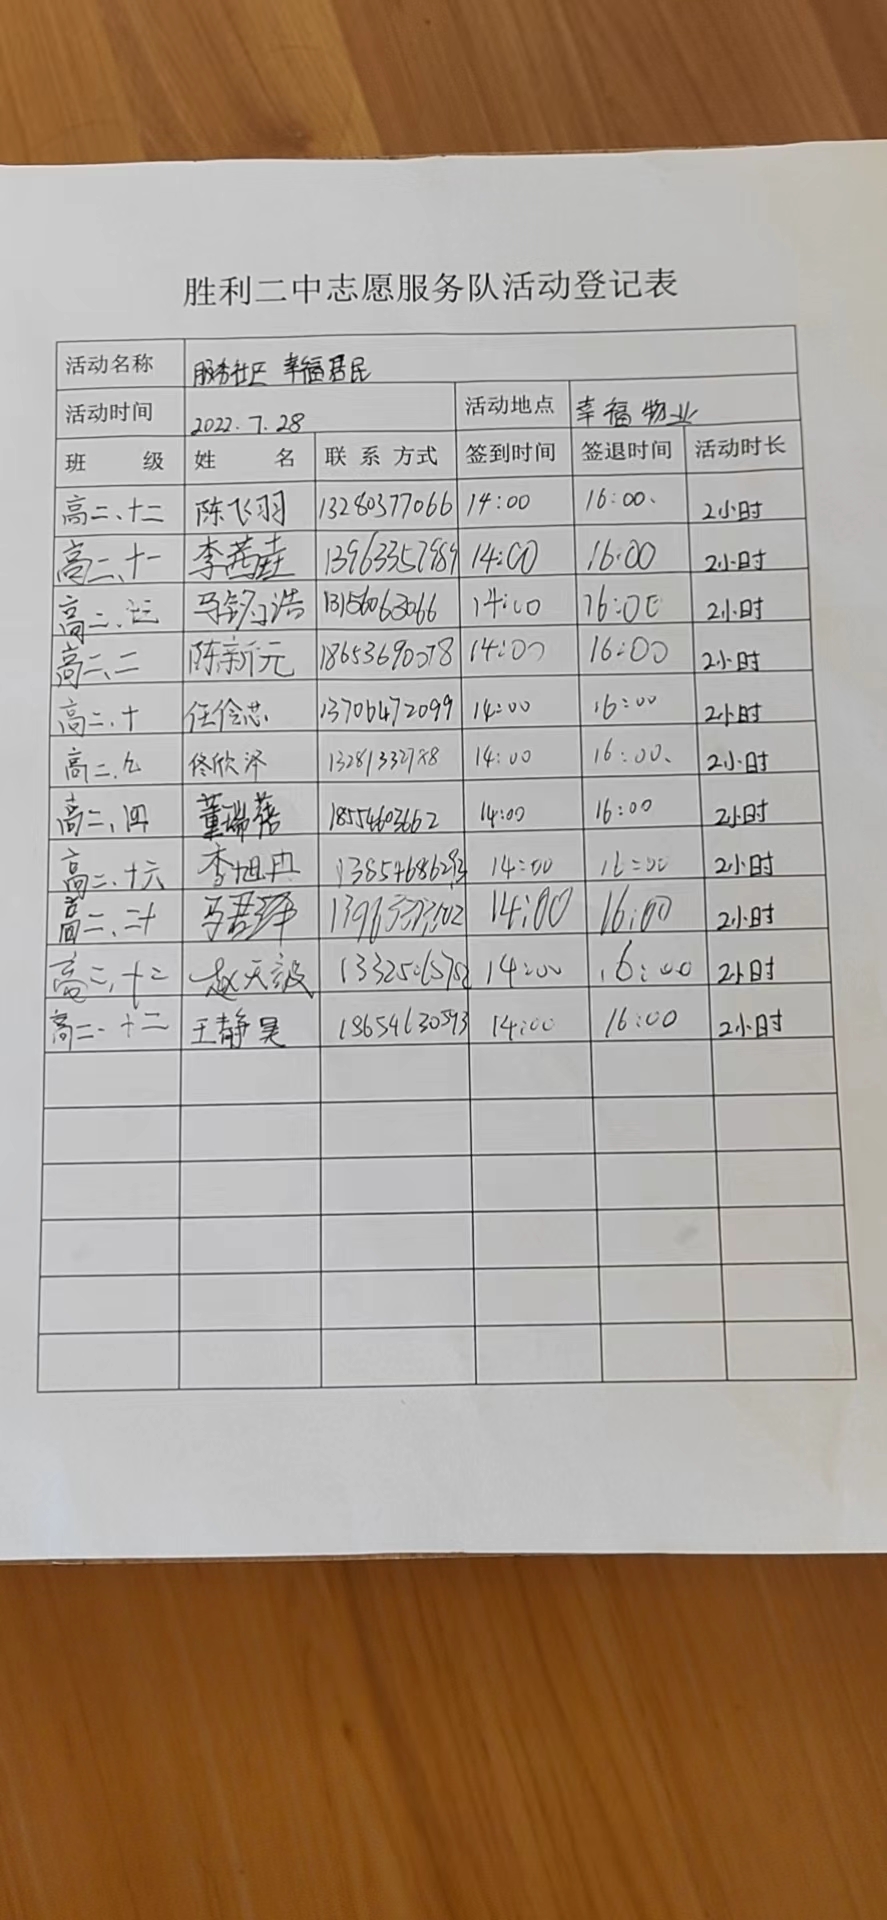 胜利二中志愿服务队活动登记表
活动名称 服务社区 幸福居民
活动时间 2022.7.28 活动地点 幸福物业
班 级 姓 名 联 系 方式 签到时间 签退时间 活动时长
高二、十二 陈飞羽 13280377066 14:00 16:00、 2小时
高二、十一 李茜 13963357989 14:00 16:00 2小时
高二、 马 浩 13156063066 14:00 16:00 2小时
高二、二 陈新元 14:00 16:00 2小时
高二、十 任 13706472099 14:00 16:00 2小时
高二、九 佟欣 14:00 16:00、 2小时
高二、四 董瑞蓓 18554603662 14:00 16:00 2小时
高二、十六 李旭冉 14:00 16:00 2小时
高二、二十 马君 14:00 16:00 2小时
高二、十二 赵天毅 14:00 16:00 2小时
高二、十二 王静昊 14:00 16:00 2小时